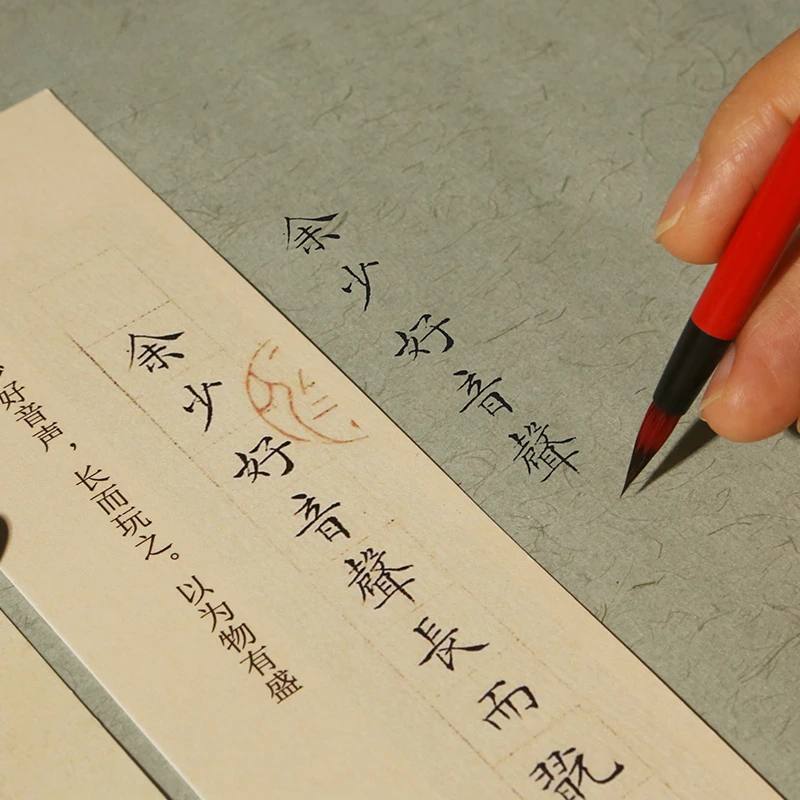 余少好音聲
余少好音聲長而翫
好音声，长而玩之。以为物有盛